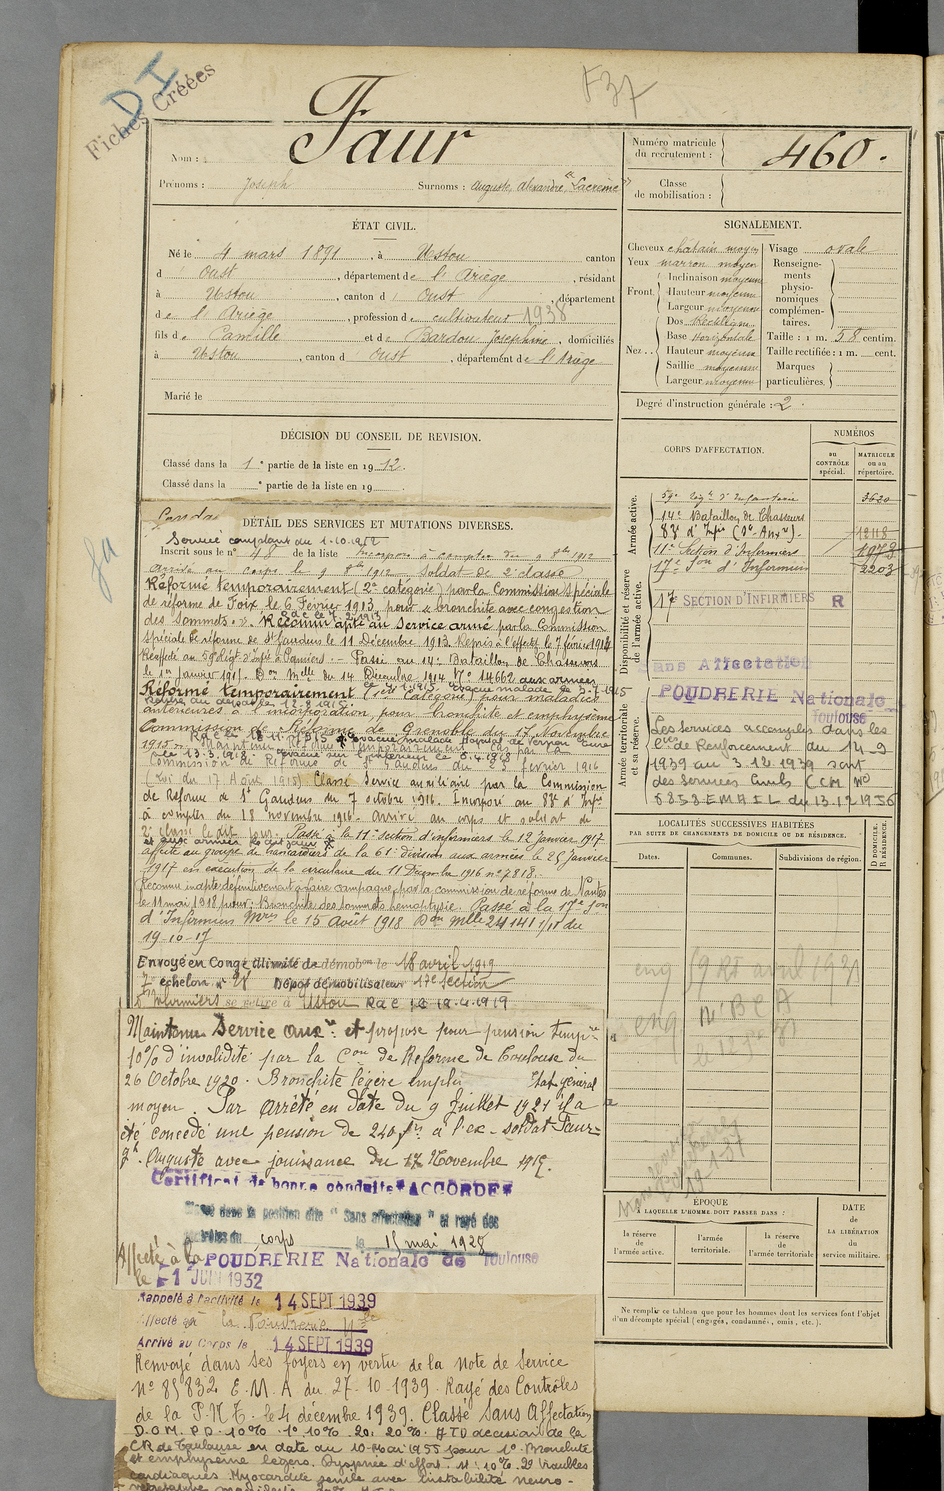 DI
Fiches Créées
F37
Faur
Nom :
Prénoms : Joseph Surnoms : Auguste, Alexandre, "Lacreme"
Numéro matricule du recrutement : 460.
Classe de mobilisation :
ÉTAT CIVIL.
Né le 4 mars 1891, à Ustou canton
d' Oust, département de l'Ariège, résidant
à Ustou, canton d' Oust, département
de l'Ariège, profession de cultivateur 1938
fils de Camille et de Bardou Joséphine, domiciliés
à Ustou, canton d' Oust, département de l'Ariège
Marié le
SIGNALEMENT.
Cheveux chatain moyen
Yeux marron moyen
Front. Inclinaison moyenne
Hauteur moyenne
Largeur moyenne
Nez. Dos Rectiligne
Base Horizontale
Hauteur moyenne
Saillie moyenne
Largeur moyenne
Visage ovale
Renseignements physionomiques complémentaires.
Taille : 1 m. 58 centim.
Taille rectifiée : 1 m. cent.
Marques particulières.
Degré d'instruction générale : 2.
DÉCISION DU CONSEIL DE REVISION.
Classé dans la 1e partie de la liste en 1912.
Classé dans la e partie de la liste en 19
CORPS D'AFFECTATION.
NUMÉROS
au CONTRÔLE spécial.
MATRICULE ou au répertoire.
Armée active.
59e Régt d'Infanterie 3620
14e Bataillon de Chasseurs
83e d'Infie (Sce Auxre) 12118
11e Section d'Infirmiers 1973
17e Son d'Infirmiers 2203
Disponibilité et réserve de l'armée active.
17 SECTION D'INFIRMIERS R
Sans Affectation
POUDRERIE Nationale
Toulouse
Armée territoriale et sa réserve.
Les services accomplis dans les
Cies de Renforcement du 14-9
1939 au 3.12.1939 sont
des Services Civils (CCM No
5253 EMAIL du 13.12.1956
DÉTAIL DES SERVICES ET MUTATIONS DIVERSES.
Service comptant du 1.10.1912
Inscrit sous le n° 48 de la liste Incorporé à compter du 9 8bre 1912
Arrivé au corps le 9 8bre 1912 Soldat de 2e classe
Réformé temporairement (2e catégorie) par la Commission spéciale
de réforme de Foix, le 6 Février 1913, pour "bronchite avec congestion
des Sommets". Reconnu apte au Service armé par la Commission
spéciale de réforme de St Gaudens le 11 Décembre 1913. Repris à l'effectif le 7 février 1914
Réaffecté au 59e Régt d'Infie à Pamiers. Passé au 14e Bataillon de Chasseurs
le 1er Janvier 1915. Don Mlle du 14 Décembre 1914 No 14662 aux armées
Réformé temporairement (1ère Catégorie) pour maladies
antérieures à l'incorporation, pour bronchite et emphysème
Commission de Réforme de Grenoble du 17 Novembre
1915 Maintenu Réformé Temporairement
Commission de Réforme de St Gaudens du 3 février 1916
(Loi du 17 Août 1915) Classé Service auxiliaire par la Commission
de Réforme de St Gaudens du 7 octobre 1916. Incorporé au 83e d'Infie
à compter du 18 novembre 1916. Arrivé au corps et soldat de
2e classe le dit jour. Passé à la 11e section d'infirmiers le 12 Janvier 1917
affecté au groupe de brancardiers de la 61e division aux armées le 25 Janvier
1917 en exécution de la circulaire du 11 Décembre 1916 n° 7818.
Reconnu inapte définitivement à faire campagne par la commission de réforme de Nantes
le 11 mai 1918 pour : Bronchite des sommets hémoptysie. Passé à la 17e Son
d'Infirmiers Mres le 15 Août 1918 Don Mlle 24141 1/11 du
19-10-17
Envoyé en Congé illimité de démobon le 18 avril 1919
7e échelon, n° 28 Dépôt démobilisateur 17e section
d'Infirmiers se retire à Ustou RaC le 19.4.1919
Maintenu Service auxre et proposé pour pension tempre
10% d'invalidité par la Con de Réforme de Toulouse du
26 Octobre 1920. Bronchite légère Etat général
moyen. Par arrêté en date du 9 Juillet 1921 il a
été concédé une pension de 240 frs à l'ex-soldat Faur
Jh Auguste avec jouissance du 17 Novembre 1915.
Certificat de bonne conduite "ACCORDÉ"
Classé dans la position dite "Sans affectation" et rayé des
contrôles du corps le 15 mai 1928
Affecté à la POUDRERIE Nationale de Toulouse
le 1 JUIN 1932
Rappelé à l'activité le 14 SEPT 1939
Affecté à la Poudrerie Nle
Arrivé au Corps le 14 SEPT 1939
Renvoyé dans ses foyers en vertu de la Note de Service
N° 85832 E.M.A du 27-10-1939. Rayé des Contrôles
de la P.N.T. le 4 décembre 1939. Classé Sans Affectation
D.O.M. P.D. 10% 1° 10% 2°: 20% ATD décision de la
CR de Toulouse en date du 10 Mai 1955 pour 1° Bronchite
et emphysème légers. Dyspnée d'effort. 10% 2° Troubles
cardiaques Myocardite sénile avec instabilité neuro-
LOCALITÉS SUCCESSIVES HABITÉES
PAR SUITE DE CHANGEMENTS DE DOMICILE OU DE RÉSIDENCE.
Dates. Communes. Subdivisions de région. D DOMICILE. R RÉSIDENCE.
eng 59 RI avril 1921
eng 14 BCA
ÉPOQUE
À LAQUELLE L'HOMME DOIT PASSER DANS :
la réserve de l'armée active.
l'armée territoriale.
la réserve de l'armée territoriale
DATE de LA LIBÉRATION du service militaire.
Ne remplir ce tableau que pour les hommes dont les services font l'objet
d'un décompte spécial (engagés, condamnés, omis, etc.).